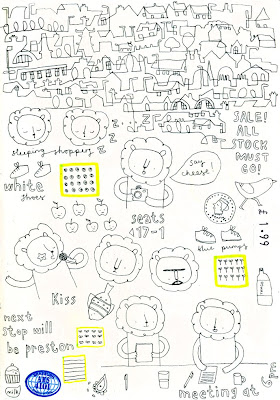 SALE!
ALL
STOCK
MUST
GO!
z
z
z
sleeping shoppers
say
cheese!
white
shoes
seats
417-1
£1.99
blue pumps
Kiss
next
stop will
be preston
milk
meeting at